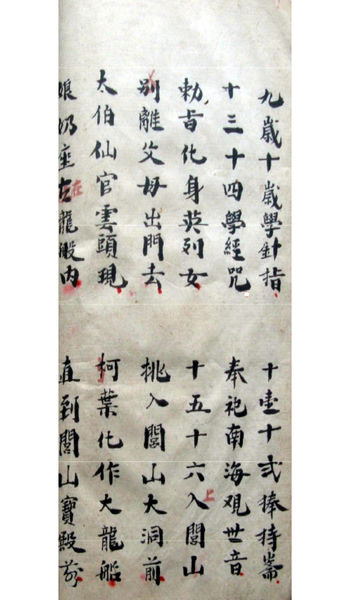 九歲十歲學針指 十壹十弍捧持齋
十三十四學經咒 奉祀南海观世音
勅旨化身英列女 十五十六入閭山 上
别離父母出門去 挑入閭山大洞前
太伯仙官雲頭現 柯葉化作大龍船
娘奶座在龍船内 直到閭山寶殿前